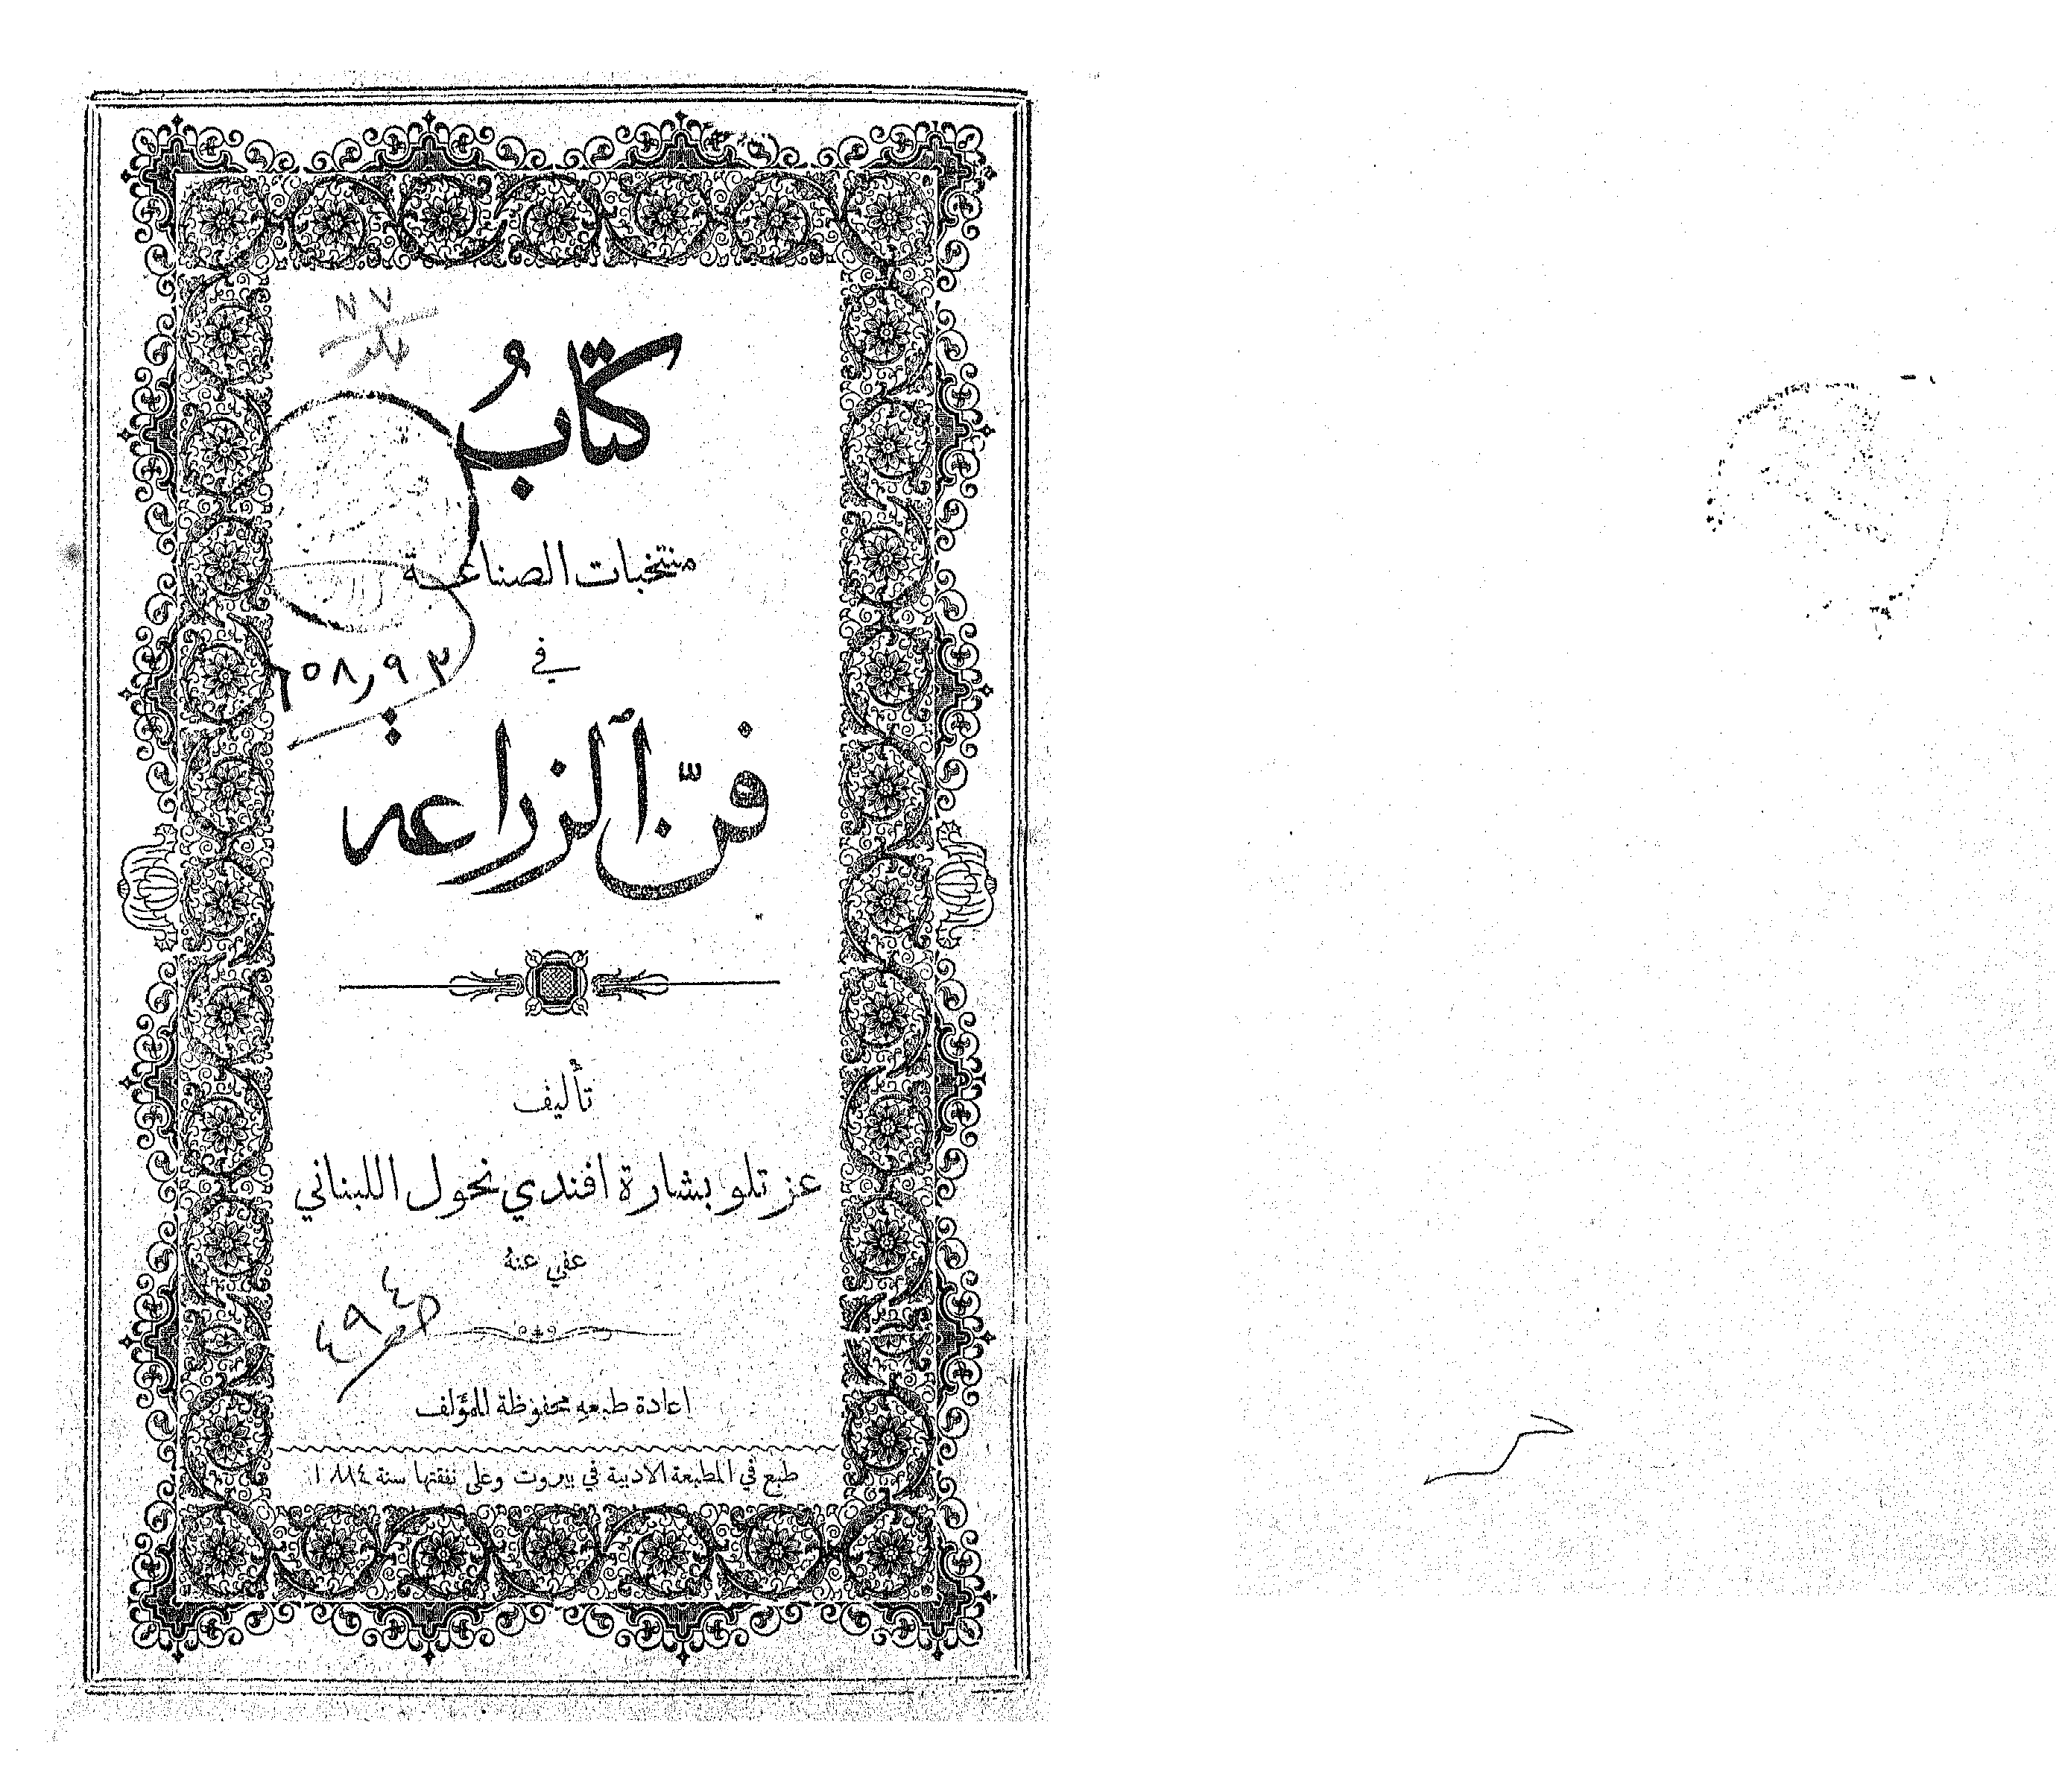 كتابُ
منتخبات الصناعة
في
٦٥٨,٩٣
فنّ ٱلزراعة
تأليف
عزتلو بشارة افندي نحول اللبناني
عفي عنهُ
اعادة طبعهِ محفوظة للمؤلف
طبع في المطبعة الادبية في بيروت وعلى نفقتها سنة ١٨٨٤